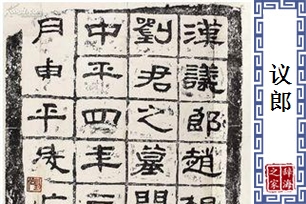 议郎
辞海
之家
漢議郎趙相
劉君之墓門
中平四年三
月平